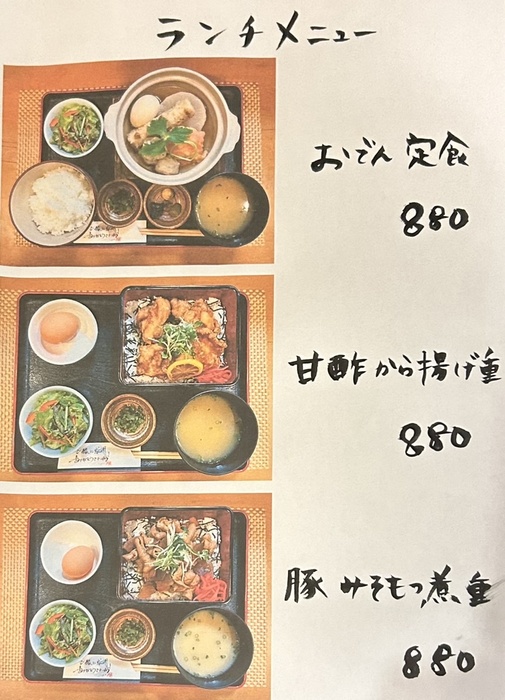 ランチメニュー
おでん定食
880
甘酢から揚げ重
880
豚みそもつ煮重
880